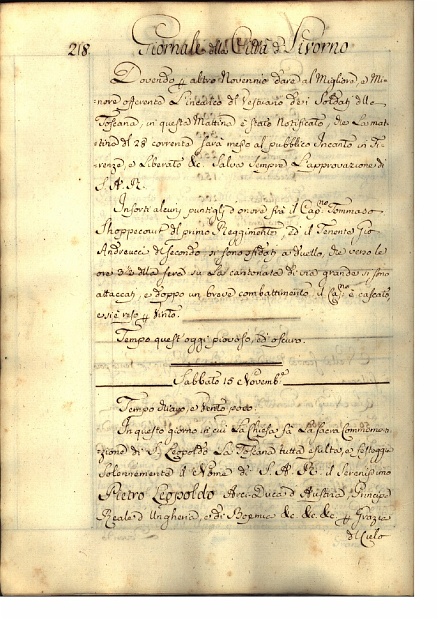 218 Giornale della Città di Livorno
Dovendo p altro Novennio dare al Migliore, e Mi-
nore offerente L'incarico del Vestuario de i Soldati della
Toscana, in questa Mattina è stato Notificato, che La mat-
tina del 28 corrente sarà messo al pubblico Incanto in Fi-
renze, e Liberato &c. salva sempre L'approvazione di
S. A. R.
Insorti alcuni puntigli d'onore frà il Capno Tommaso
Shoppecourt del primo Reggimento, ed il Tenente Gio
Andreucci del secondo si sono sfidati a duello, che verso le
ore della sera su La cantonata di via grande si sono
attaccati, e doppo un breve combattimento, il Capno è cascato,
e si è reso p vinto.
Tempo quest'oggi piovoso, ed oscuro.
Sabbato 15 Novembre
Tempo vago, e vento poco.
In questo giorno in cui La Chiesa fà La sacra Commemora-
zione di S. Leopoldo La Toscana tutta esulta, e festeggia
Solennemente il Nome di S. A. R. il Serenissimo
Pietro Leopoldo Arci-Duca d'Austria, Principe
Reale d'Ungheria, e di Boemia &c. &c. &c. p Grazia
del Cielo